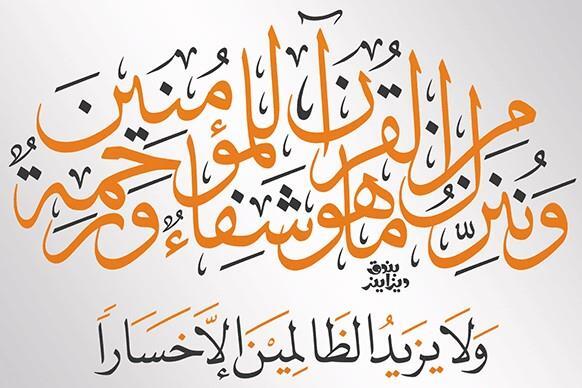 وَنُنَزِّلُ مِنَ الْقُرْآنِ مَا هُوَ شِفَاءٌ وَرَحْمَةٌ لِّلْمُؤْمِنِينَ
وَلَا يَزِيدُ الظَّالِمِيْنَ إِلَّا خَسَارًا